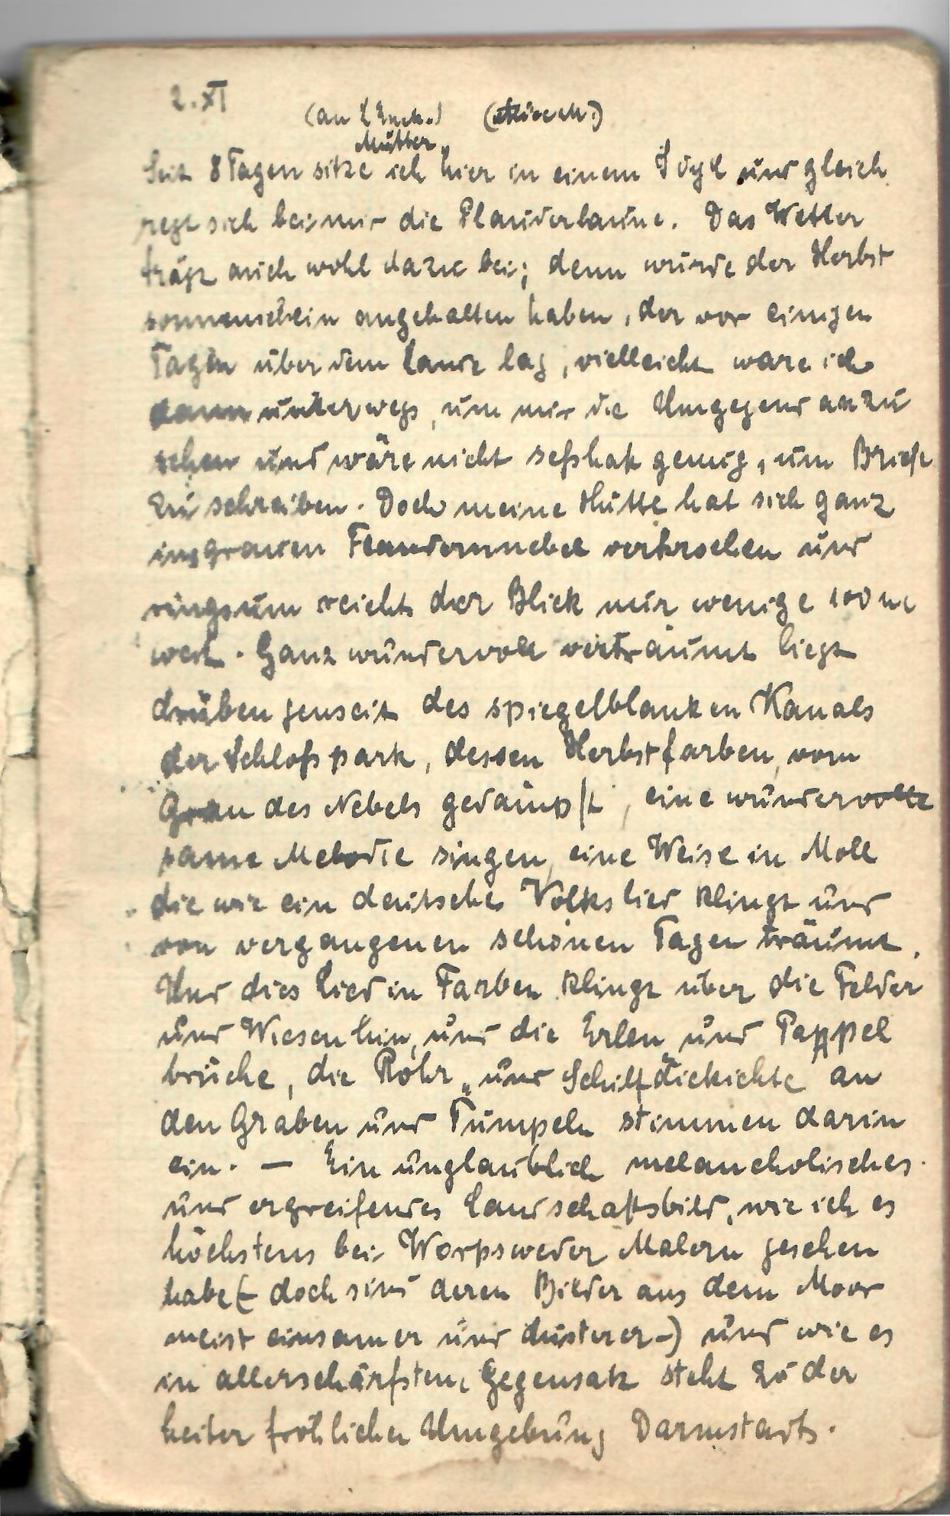 2. XI
(an
Mutter
Seit 8 Tagen sitze ich hier in einem Idyll und gleich
regt sich bei mir die Plauderlaune. Das Wetter
trägt auch wohl dazu bei; denn würde der Herbst
sonnenschein angehalten haben, der vor einigen
Tagen über dem Lande lag, vielleicht wäre ich
dann unterwegs, um mir die Umgegend anzu
sehen und wäre nicht seßhaft genug, um Briefe
zu schreiben. Doch meine Hütte hat sich ganz
ins grauen Flandernnebel verkrochen und
ringsum reicht der Blick nur wenige 100 m
weit. Ganz wundervoll verträumt liegt
drüben jenseit des spiegelblanken Kanals
der Schloßpark, dessen Herbstfarben, vom
Grau des Nebels gedämpft, eine wundervolle
same Melodie singen, eine Weise in Moll
die wie ein deutsches Volkslied klingt und
von vergangenen schönen Tagen träumt.
Und dies Lied in Farben klingt über die Felder
und Wiesen hin, und die Erlen und Pappel
brüche, die Rohr- und Schilfdickichte an
den Graben und Tümpeln stimmen darin
ein. — Ein unglaublich melancholisches
und ergreifendes Landschaftsbild, wie ich es
höchstens bei Worpsweder Malern gesehen
habe (- doch sind deren Bilder aus dem Moor
meist einsamer und düsterer -) und wie es
in allerschärfstem Gegensatz steht zu der
heiter fröhlichen Umgebung Darmstadts.